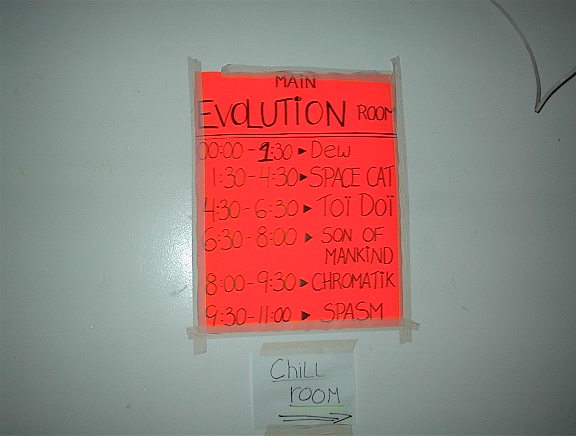 MAIN
EVOLUTION ROOM
00:00-1:30 ▸ Dew
1:30-4:30 ▸ SPACE CAT
4:30-6:30 ▸ Toï Doï
6:30-8:00 ▸ SON OF
MANKIND
8:00-9:30 ▸ CHROMATIK
9:30-11:00 ▸ SPASM
Chill
room